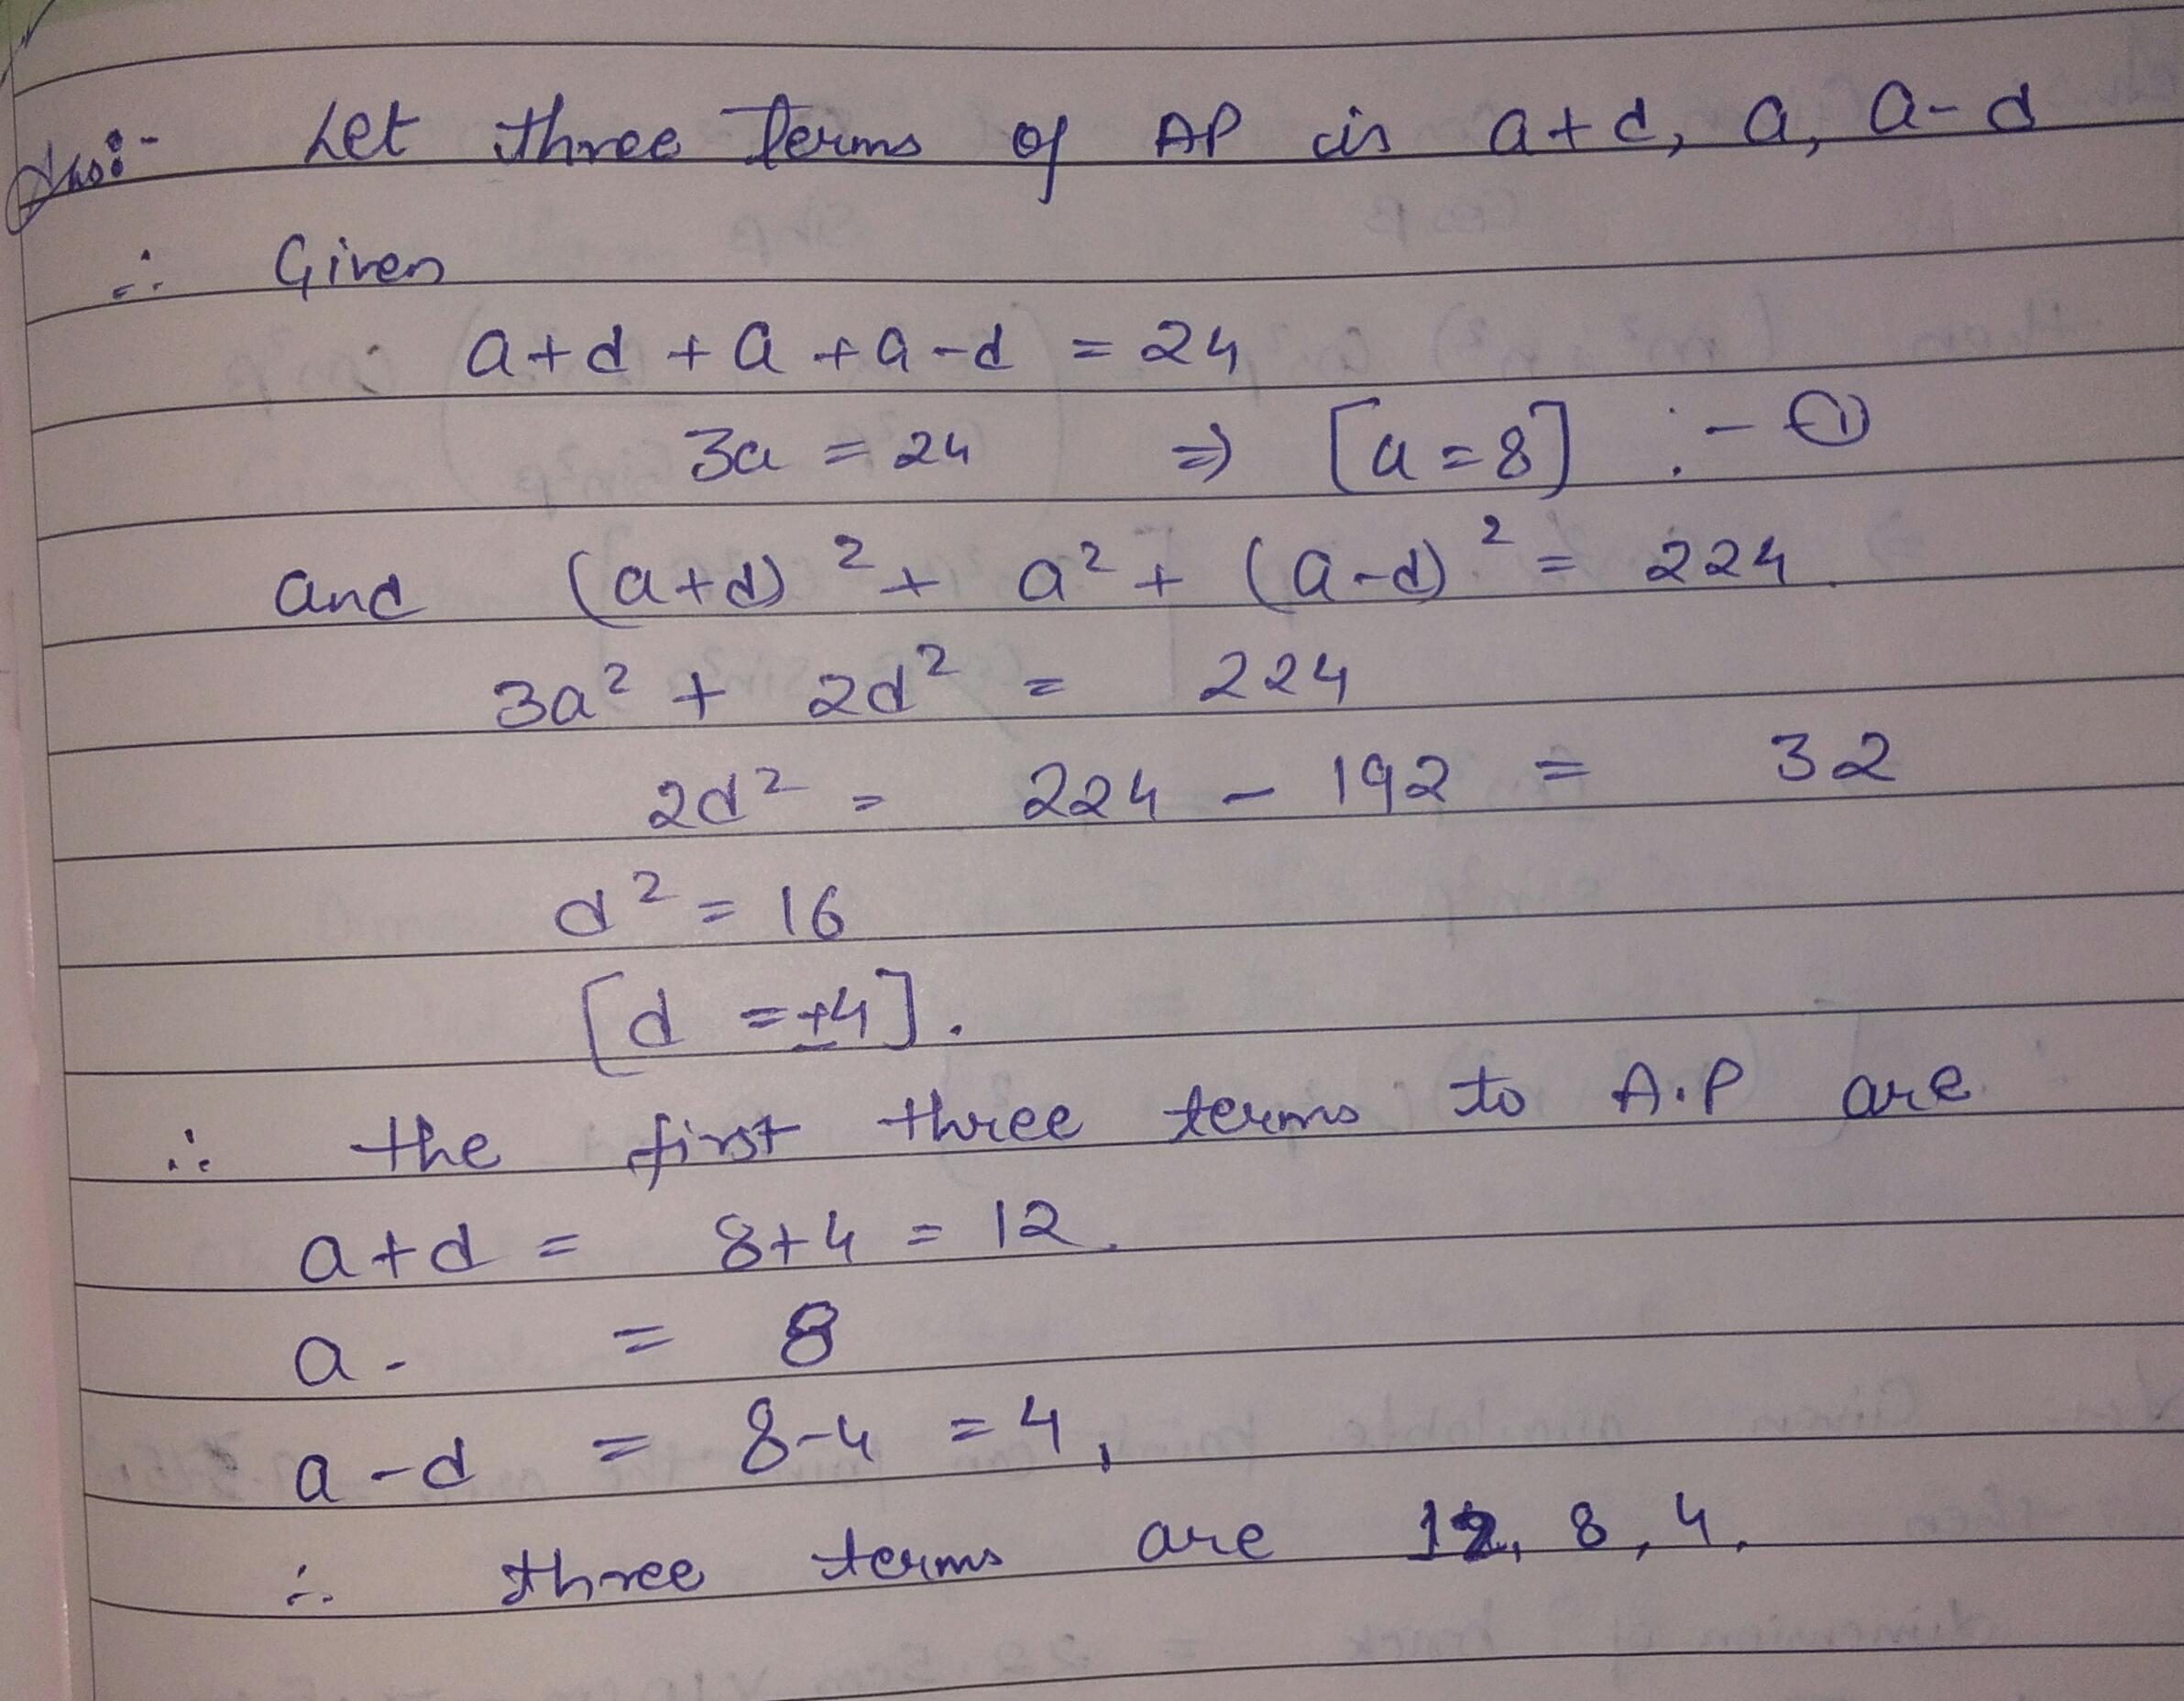 Ans:- Let three terms of AP is a+d, a, a-d
∴ Given
a+d + a + a-d = 24
3a = 24 ⇒ [a=8] :- ①
and (a+d)² + a² + (a-d)² = 224.
3a² + 2d² = 224
2d² = 224 - 192 = 32
d² = 16
[d = ±4].
∴ the first three terms to A.P are
a+d = 8+4 = 12.
a - = 8
a-d = 8-4 = 4,
∴ three terms are 12, 8, 4.